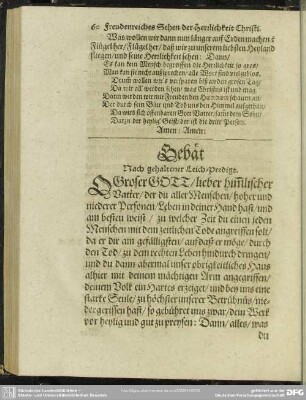 60 Freudenreiches Sehen der Herrlichkeit Christi.
Was wollen wir dann nun länger auf Erden machen?
Flügel her / Flügel her / daß wir zu unserem liebsten Heyland
fliegen / und seine Herrlichkeit sehen: Dann /
Es ist kein Mensch begreiffen die Herrlichkeit so gros /
Man kan sie nicht aussprechen / alle Wort sind viel zu blos.
Drum wollen wir's versparen biß an den Tag /
Da wir all werden sehen / was Christus ist und mag
Dann werden wir mit Freuden den Heyland schauen an /
Der durch sein Blut und Tod uns den Himmel aufgethan /
Da wird sich offenbaren Gott Vatter, samt dem Sohn /
Darzu der heylig Geist / der ist die dritt Person.
Amen: Amen:
Gebät
Nach gehaltener Leich-Predigt.
O Groser GOTT / lieber himlischer
Vatter / der du aller Menschen / hoher und
niederer Personen Leben in deiner Hand hast / und
am besten weist / zu welcher Zeit du einen jeden
Menschen mit dem zeitlichen Tode angreiffen solt /
da er dir am gefälligsten / auf daß er möge / durch
den Tod / zu dem rechten Leben hindurch drungen /
und du dann abermal unser obrigkeitliches Haus
alhier mit deinem mächtigen Arm angegriffen /
deinem Volk ein Hartes erzeiget / und bey uns eine
starke Seule / zu höchster unserer Betrübnüs / nie-
dergerissen hast / so gebühret uns zwar / dein Werk
vor heylig und gut zu preysen: Dann / alles / was
du